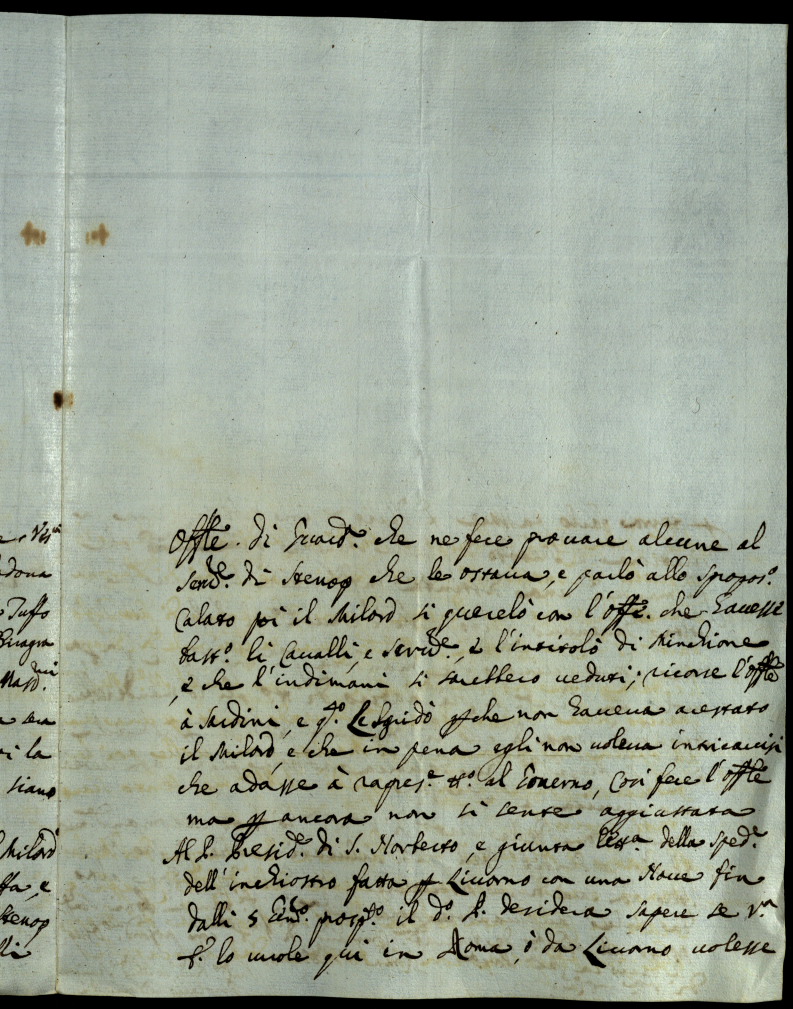 e Vis.
dona
Tuffo
Bragm
Mad.
a sua
i la
siano
Milord
ffa, e
Stenop
li
Offle. di Guard.e che ne fece prouare alcune al
Serd.e di Stenop che le ostaua, e parlò allo sposos.o
Calato poi il Milord si querelò con l'offe. che hauesse
bast.o li Caualli, e Serud.e, e l'intitolò di Minchione
, e che l'indimani si sarebbero ueduti; ricorse l'offle
à Sardini, e q.o le sgridò p che non haueua arestato
il Milord, e che in pena egli non uoleua intricarsi
che adasse à rapres.e tt.o al Gouerno, così fece l'offle
ma p ancora non si sente aggiustata
Al P. Presid.e di S. Norberto, e giunta lett.a della sped.e
dell'inchiostro fatta p Liuorno con una Naue fin
dalli 5 pasp.to il d.o P. desidera sapere se V.a
P. lo uuole qui in Roma, ò da Liuorno uolesse